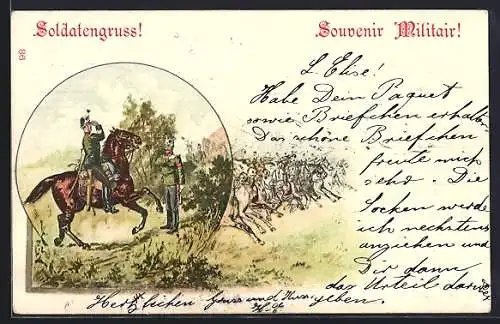 Soldatengruss!
Souvenir Militair!
86
L. Elise!
Habe Dein Paquet
sowie Briefchen erhalten
Das schöne Briefchen
freute mich
sehr. Die
Socken werde
ich nechstens
anziehen und
Dir dann
das Urteil darüber
geben.
Herzlichen Gruss und Kuss